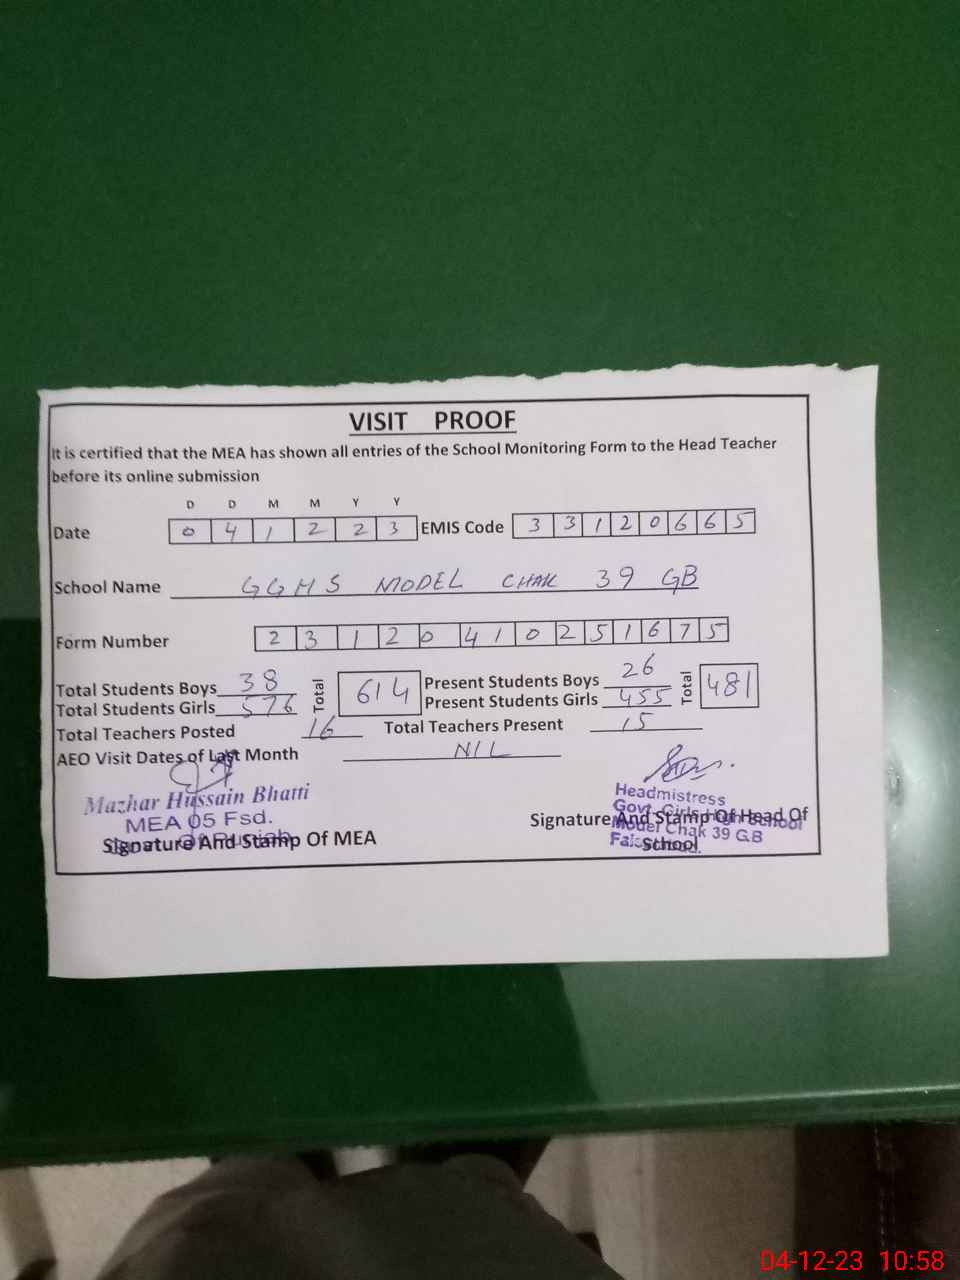 VISIT PROOF
It is certified that the MEA has shown all entries of the School Monitoring Form to the Head Teacher
before its online submission
D D M M Y Y
Date 0 4 1 2 2 3 EMIS Code 3 3 1 2 0 6 6 5
School Name GGHS MODEL CHAK 39 GB
Form Number 2 3 1 2 0 4 1 0 2 5 1 6 7 5
Total Students Boys 38 Total 614 Present Students Boys 26 Total 481
Total Students Girls 576 Present Students Girls 455
Total Teachers Posted 16 Total Teachers Present 15
AEO Visit Dates of Last Month NIL
Mazhar Hussain Bhatti
MEA 05 Fsd.
Of Punjab
Signature And Stamp Of MEA
Headmistress
Govt. Girls High School
Model Chak 39 GB
Signature And Stamp Of Head Of
School
04-12-23 10:58